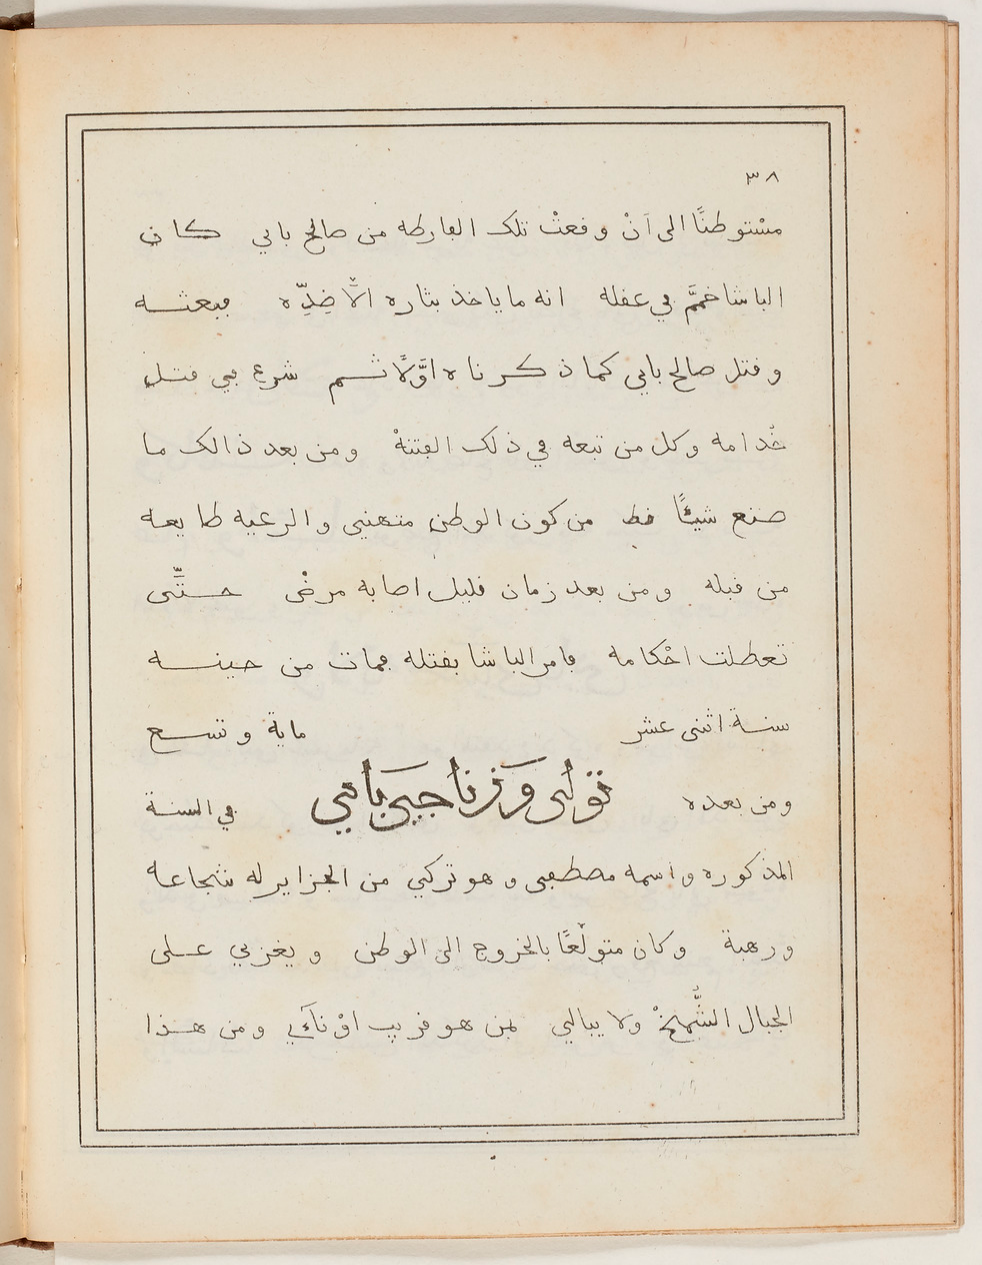 ٣٨
مسْتوطنًا الى اَنْ وڧعتْ تلک الڢارطه من صالح باي كان
الباشا خممَّ ڢي عڧله انه ما ياخذ بثاره الاَّ ضِدِّه ڢبعثه
وڧتل صالح باي كما ذكرناه اوَّلًا ثم شرع ڢي ڧتل
خْدامه وكل من تبعه ڢي ذلک الڢتنةْ ومن بعد ذالک ما
صنع شيئًا ڧط من كون الوطن متهني والرعيه طايعه
من ڧبله ومن بعد زمان ڧليل اصابه مرضْ حتَّى
تعطلت احْكامه ڢامر الباشا بڧتله ڢمات من حينه
سنة اثنى عشر ماية وتسع
ومن بعده تولى وَزناجي باي ڢي السنة
المذكوره واسمه مصطڢى وهو تركي من الجزاير له شجاعه
ورهبة وكان متولْعًا بالخروج الى الوطن ويغزي على
الجبال الشُّمخْ ولا يبالي بمن هو ڧريب اوْ ناَءِي ومن هذا